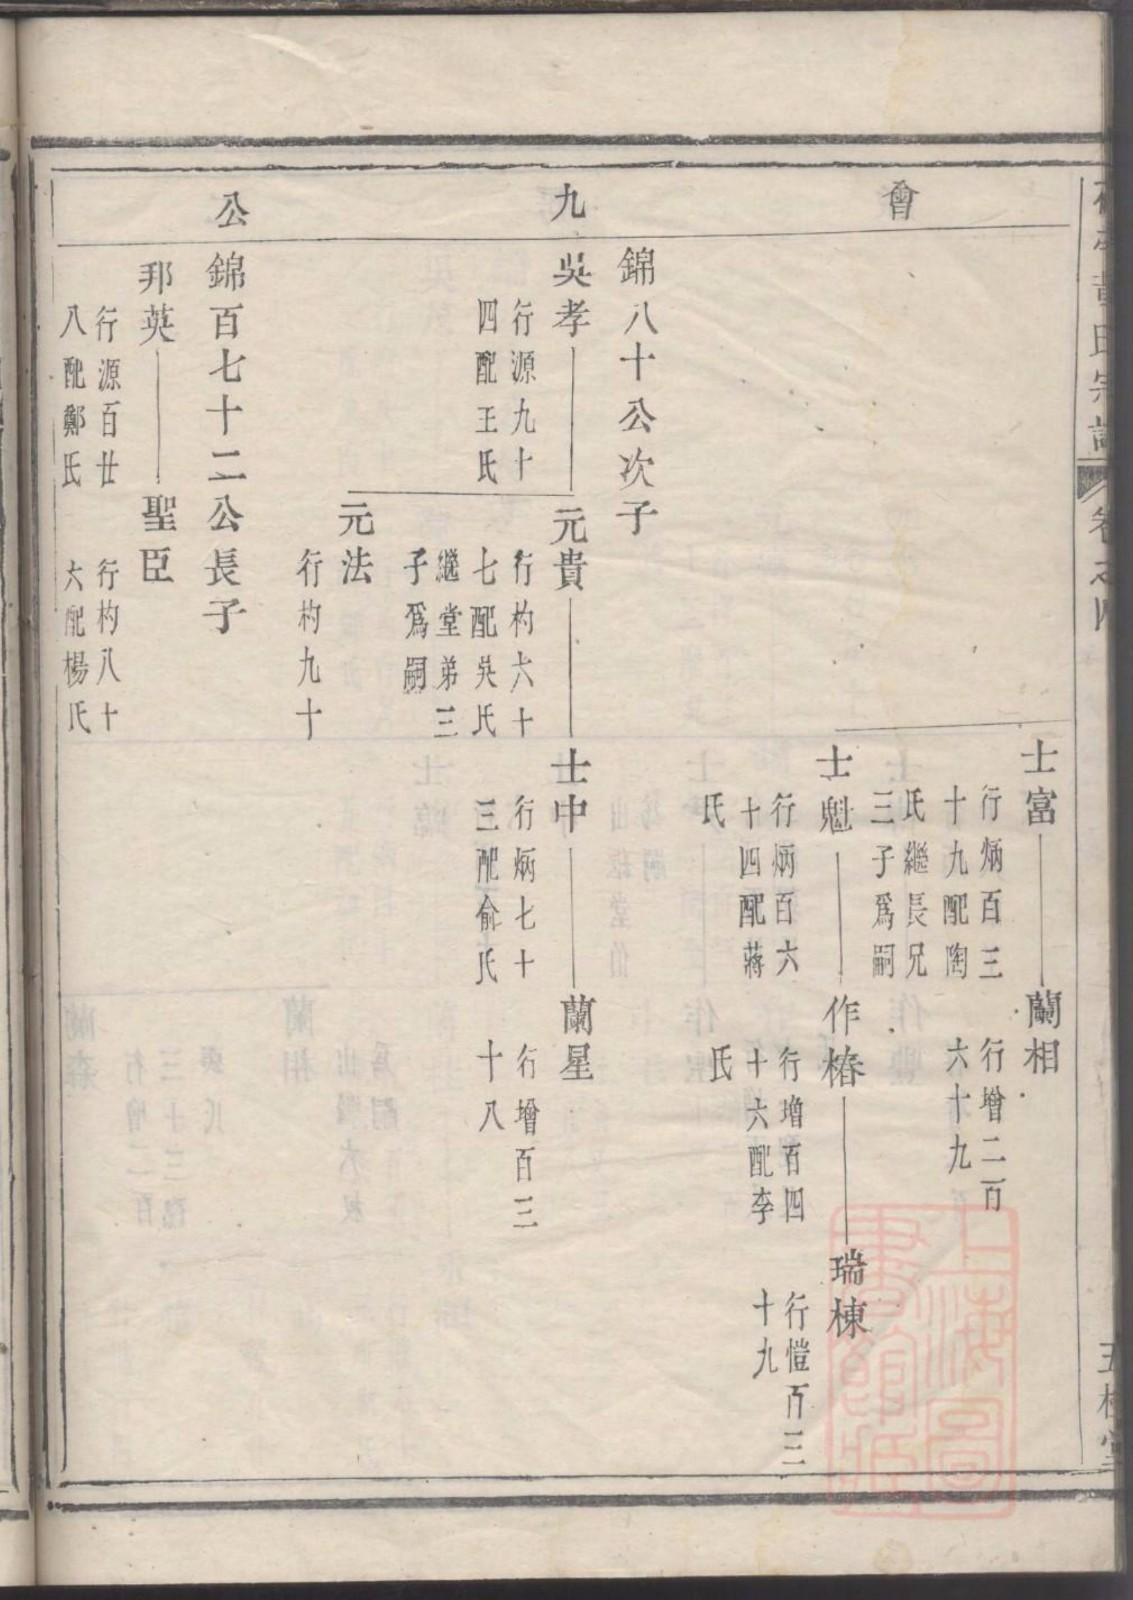 會九公
士富
行炳百三
十九配陶
氏繼長兄
三子爲嗣
蘭相
行增二百
六十九
士魁
行炳百六
十四配蔣
氏
作椿
行增百四
十六配李
氏
瑞棟
行愷百三
十九
錦八十公次子
吳孝
行源九十
四配王氏
元貴
行杓六十
七配吳氏
繼堂弟三
子爲嗣
士中
行炳七十
三配俞氏
蘭星
行增百三
十八
元法
行杓九十
錦百七十二公長子
邦英
行源百廿
八配鄭氏
聖臣
行杓八十
六配楊氏
黃氏宗譜
卷之四
五桂堂
上海圖書館藏